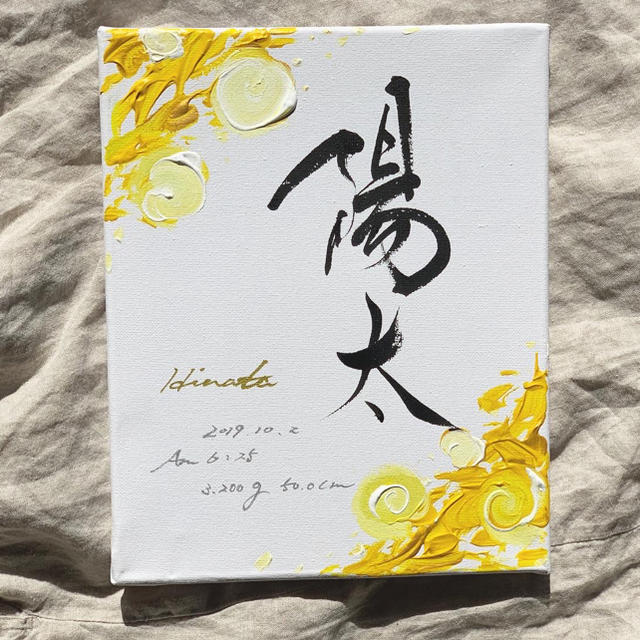 陽太
Hinata
2019.10.2
Am 6:25
3.200g 50.0cm